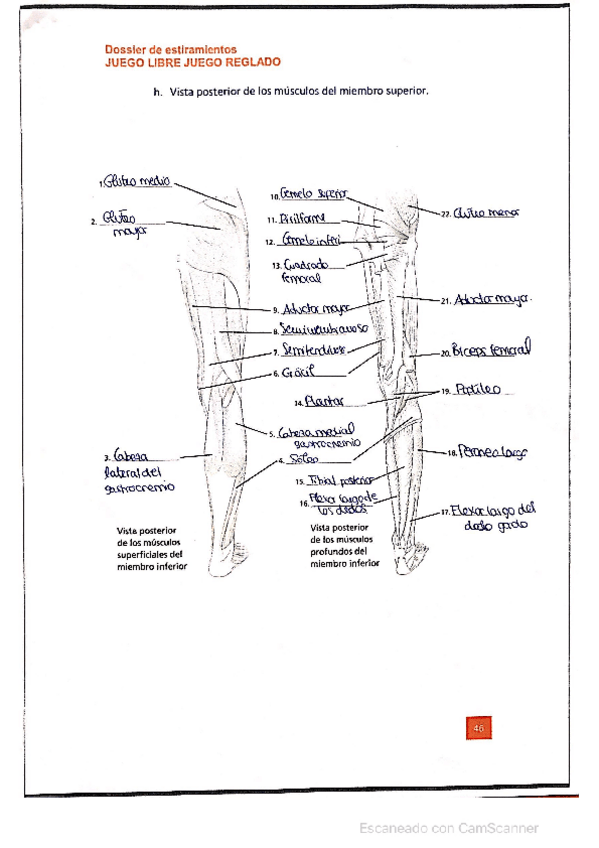 Dossier de estiramientos
JUEGO LIBRE JUEGO REGLADO
h. Vista posterior de los músculos del miembro superior.
1. Glúteo medio
2. Glúteo
mayor
10. Gemelo superior
11. Piriforme
12. Gemelo inferi
13. Cuadrado
femoral
22. Glúteo menor
9. Aductor mayor
8. Semimembranoso
7. Semitendinoso
6. Grácil
21. Aductor mayor.
20. Bíceps femoral
14. Plantar
19. Poplíteo
5. Cabeza medial
gastrocnemio
4. Sóleo
3. Cabeza
lateral del
gastrocnemio
18. Peroneo largo
15. Tibial posterior
16. Flexor largo de
los dedos
17. Flexor largo del
dedo gordo
Vista posterior
de los músculos
superficiales del
miembro inferior
Vista posterior
de los músculos
profundos del
miembro inferior
46
Escaneado con CamScanner